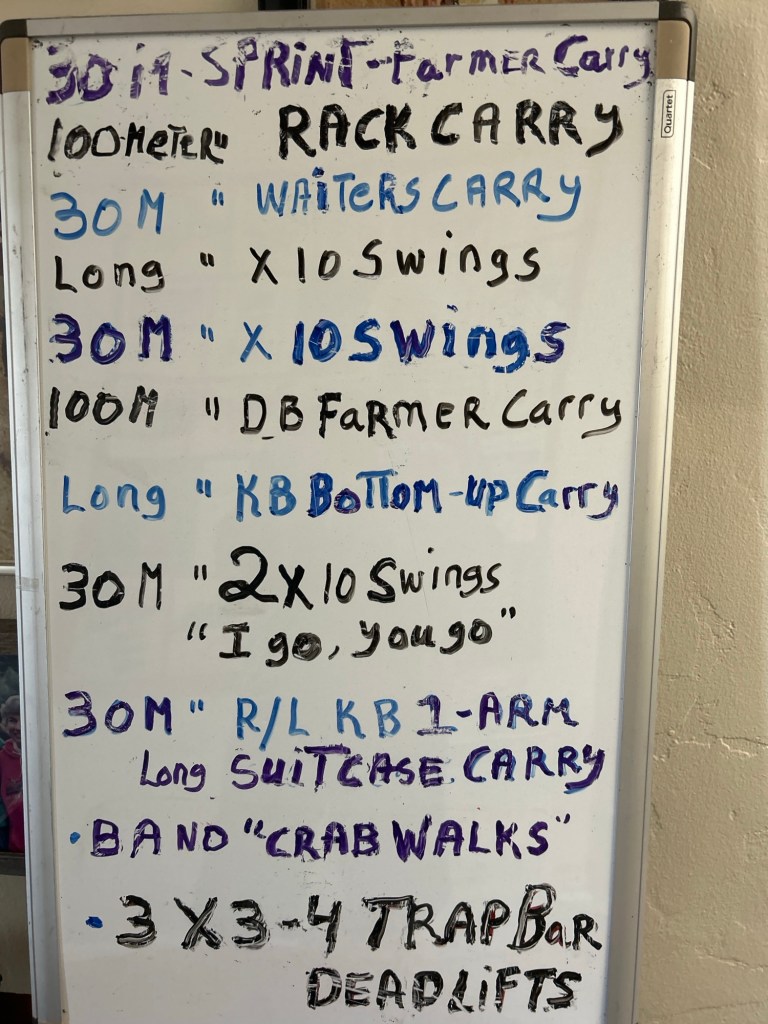 30 M - SPRINT - Farmer Carry
Quartet
100-METER " RACK CARRY
30 M " WAITERS CARRY
Long " X 10 Swings
30 M " X 10 Swings
100 M " DB FARMER Carry
Long " KB BOTTOM-UP Carry
30 M " 2X10 Swings
"I go, you go"
30 M " R/L KB 1-ARM
Long SUITCASE CARRY
• BAND "CRAB WALKS"
• 3 X 3-4 TRAP BaR
DEADLIFTS